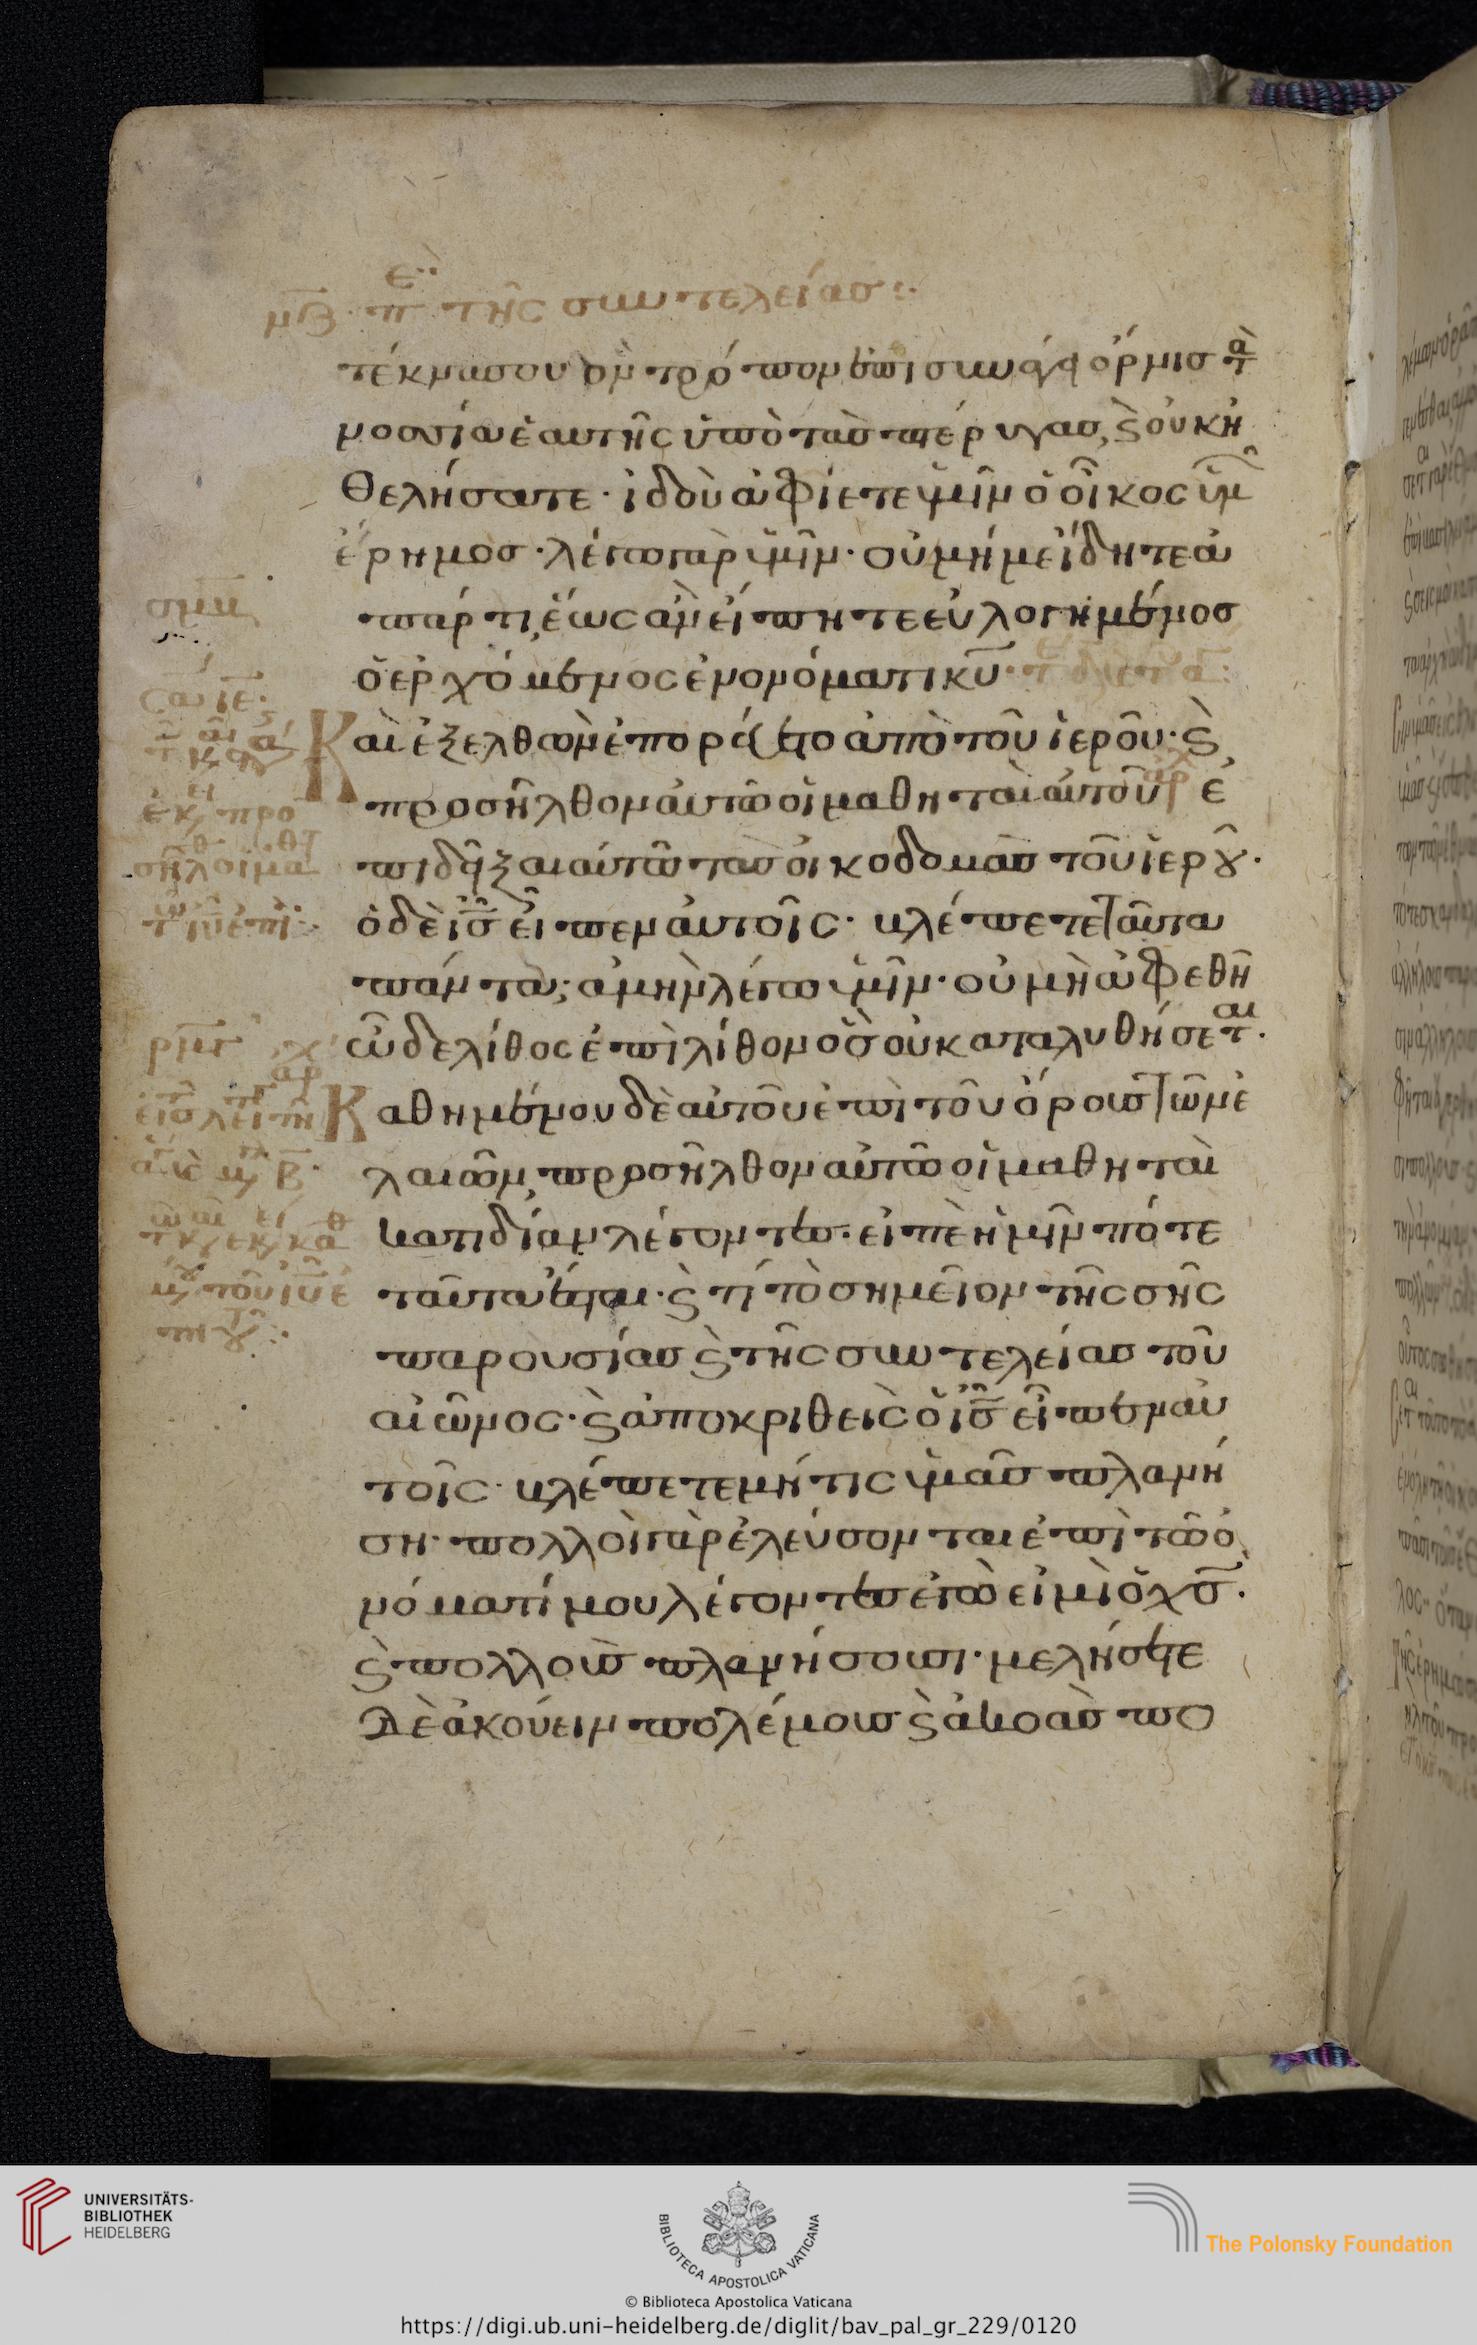 τῆς συντελείας :·
τέκνα σου ὃν τρόπον ἐπισυνάγει ὄρνις τὰ
νοσσία ἑαυτῆς ὑπὸ τὰς πτέρυγας, ϗ οὐκ ἠ
θελήσατε · ἰδοὺ ἀφίετε ὑμῖν ὁ οἶκος ὑμ
ἔρημος · λέγω γὰρ ὑμῖν · οὐ μή με ἴδητε ἀ
πάρτι, ἕως ἂν εἴπητε εὐλογημένος
ὁ ἐρχόμενος ἐν ονόματι κυ ·
Καὶ ἐξελθὼν ἐπορεύετο ἀπὸ τοῦ ἱεροῦ · ϗ
προσῆλθον αὐτῶ οἱ μαθηταὶ αὐτοῦ ἐ
πιδεῖξαι αὐτῶ τὰσ οἰκοδομὰσ τοῦ ἱεροῦ ·
ὁ δὲ ισ εἶπεν ἀυτοῖς · βλέπετε ταῦτα
πάντα; ἀμὴν λέγω ὑμῖν · οὐ μὴ ἀφεθῆ
ὧδε λίθος ἐπὶ λίθον ὃσ οὐ καταλυθήσεται ·
Καθημένου δὲ αὐτοῦ ἐπὶ τοῦ ὄρουσ τῶν ἐ
λαιῶν, προσῆλθον αὐτῶ οἱ μαθηταὶ
κατιδίαν λέγοντες · εἰπὲ ἡμῖν πότε
ταῦτα ἔσται · ϗ τί τὸ σημεῖον τῆς σῆς
παρουσίασ ϗ τῆς συντελείασ τοῦ
αἰῶνος · ϗ ἀποκριθεὶς ὁ ισ εἶπεν αὐ
τοῖς · βλέπετε μή τις ὑμᾶσ πλανή
ση · πολλοὶ γὰρ ἐλεύσονται ἐπὶ τῶ ὀ
νόματί μου λέγοντεσ ἐγὼ εἰμὶ ὁ χσ ·
ϗ πολλοὺσ πλανήσουσι · μελήσετε
δὲ ἀκούειν πολέμουσ ϗ ἀκοὰσ πο
UNIVERSITÄTS-
BIBLIOTHEK
HEIDELBERG
BIBLIOTECA APOSTOLICA VATICANA
The Polonsky Foundation
© Biblioteca Apostolica Vaticana
https://digi.ub.uni-heidelberg.de/diglit/bav_pal_gr_229/0120